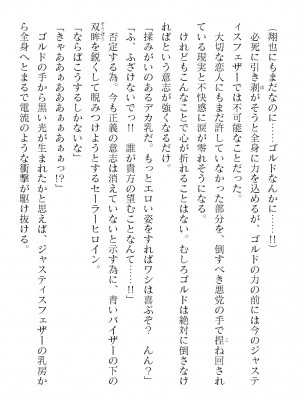 (翔也にもまだなのに……ゴルドなんかに……!!)
必死に引き剥がそうと全身に力を込めるが、ゴルドの力の前には今のジャステ
ィスフェザーでは不可能なことだった。
大切な恋人にもまだ許していなかった部分を、倒すべき悪党の手で捏ね回され
ている現実と不快感に涙が零れそうになる。
けれどもこんなことで心が折れることはない。むしろゴルドは絶対に倒さなけ
ればという意志が強くなるだけだ。
「揉みがいのあるデカ乳だ。もっとエロい姿をすればワシは喜ぶぞ? んん?」
「ふ、ふざけないでっ!! 誰が貴方の望むことなんて……!!」
否定する為に。今も正義の意志は消えていないと示す為に、青いバイザーの下の
双眸を鋭くして睨みつけようとするセーラーヒロイン。
「ならばこうするしかないな」
「きゃああぁぁぁぁぁぁぁっ!?」
ゴルドの手から黒い光が生まれたかと思えば、ジャスティスフェザーの乳房か
ら全身へとまるで電流のような衝撃が駆け抜ける。